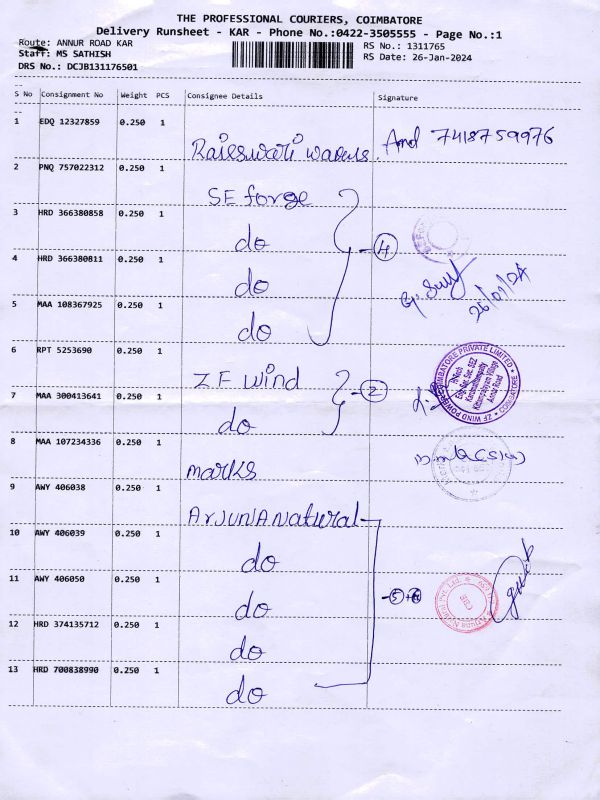 THE PROFESSIONAL COURIERS, COIMBATORE
Delivery Runsheet - KAR - Phone No.:0422-3505555 - Page No.:1
Route: ANNUR ROAD KAR RS No.: 1311765
Staff: MS SATHISH RS Date: 26-Jan-2024
DRS No.: DCJB131176501
S No Consignment No Weight PCS Consignee Details Signature
1 EDQ 12327859 0.250 1 7418759976
2 PNQ 757022312 0.250 1 SE forge
3 HRD 366380858 0.250 1 do 4
4 HRD 366380811 0.250 1 do
26/01/24
5 MAA 108367925 0.250 1 do
6 RPT 5253690 0.250 1 ZF wind 2
ZF WIND POWER COIMBATORE PRIVATE LIMITED
COIMBATORE
7 MAA 300413641 0.250 1 do
8 MAA 107234336 0.250 1 marks
9 AWY 406038 0.250 1 ArjunA Natural
10 AWY 406039 0.250 1 do
11 AWY 406050 0.250 1 do
12 HRD 374135712 0.250 1 do
13 HRD 700838990 0.250 1 do